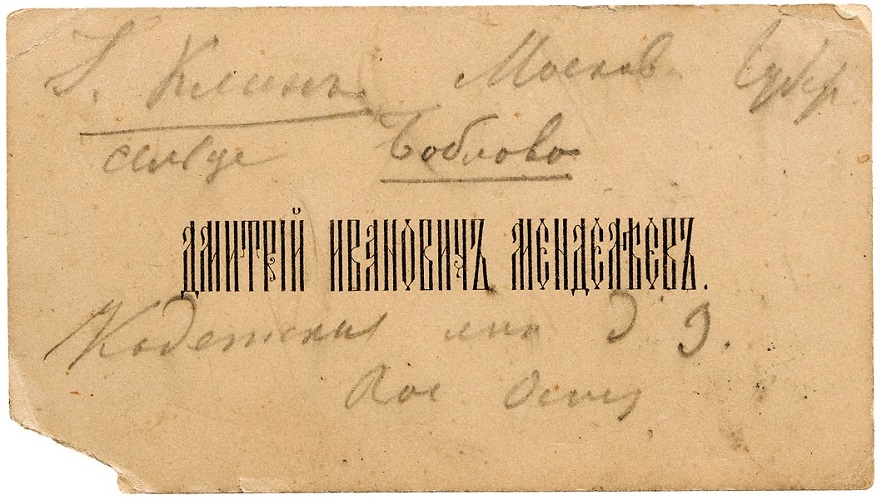 г. Клинъ Москов. Губер.
сельцо Боблово
ДМИТРІЙ ИВАНОВИЧЪ МЕНДЕЛѢЕВЪ.
Кадетская лин Д 9.